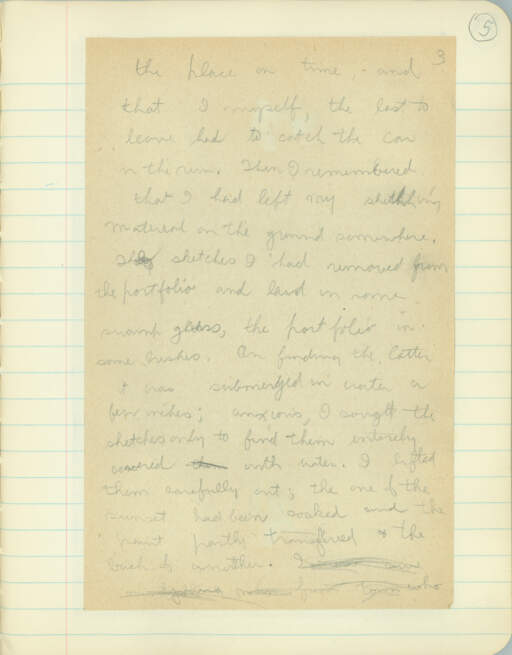 5
3
the place on time, and
that I myself, the last to
leave had to catch the car
on the run. Then I remembered
that I had left my sketching
material on the ground somewhere.
The sketches I had removed from
the portfolio and laid in some
swamp grass, the portfolio in
some bushes. On finding the latter
it was submerged in water a
few inches; anxious, I sought the
sketches only to find them entirely
covered with water. I lifted
them carefully out; the one of the
sunset had been soaked and the
paint partly transferred to the
back of another. I saw
from town who